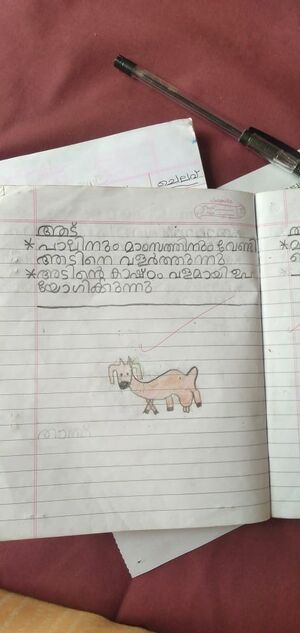 ചെലവ്
ആട്
* പാലിനും മാംസത്തിനും വേണ്ടി
ആടിനെ വളർത്തുന്നു
* ആടിന്റെ കാഷ്ഠം വളമായി ഉപ
യോഗിക്കുന്നു